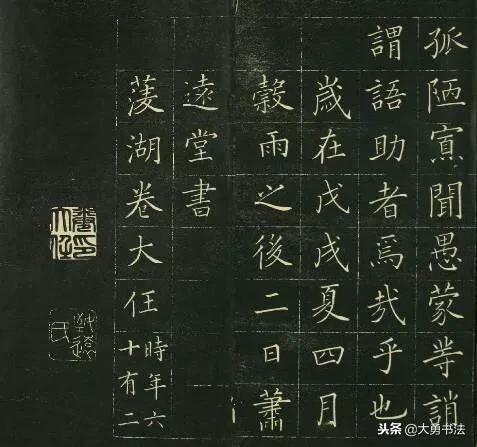 孤陋寡聞愚蒙等誚
謂語助者焉哉乎也
歲在戊戌夏四月
穀雨之後二日蕭
遠堂書
菱湖卷大任
時年六
十有二
头条 @大勇书法